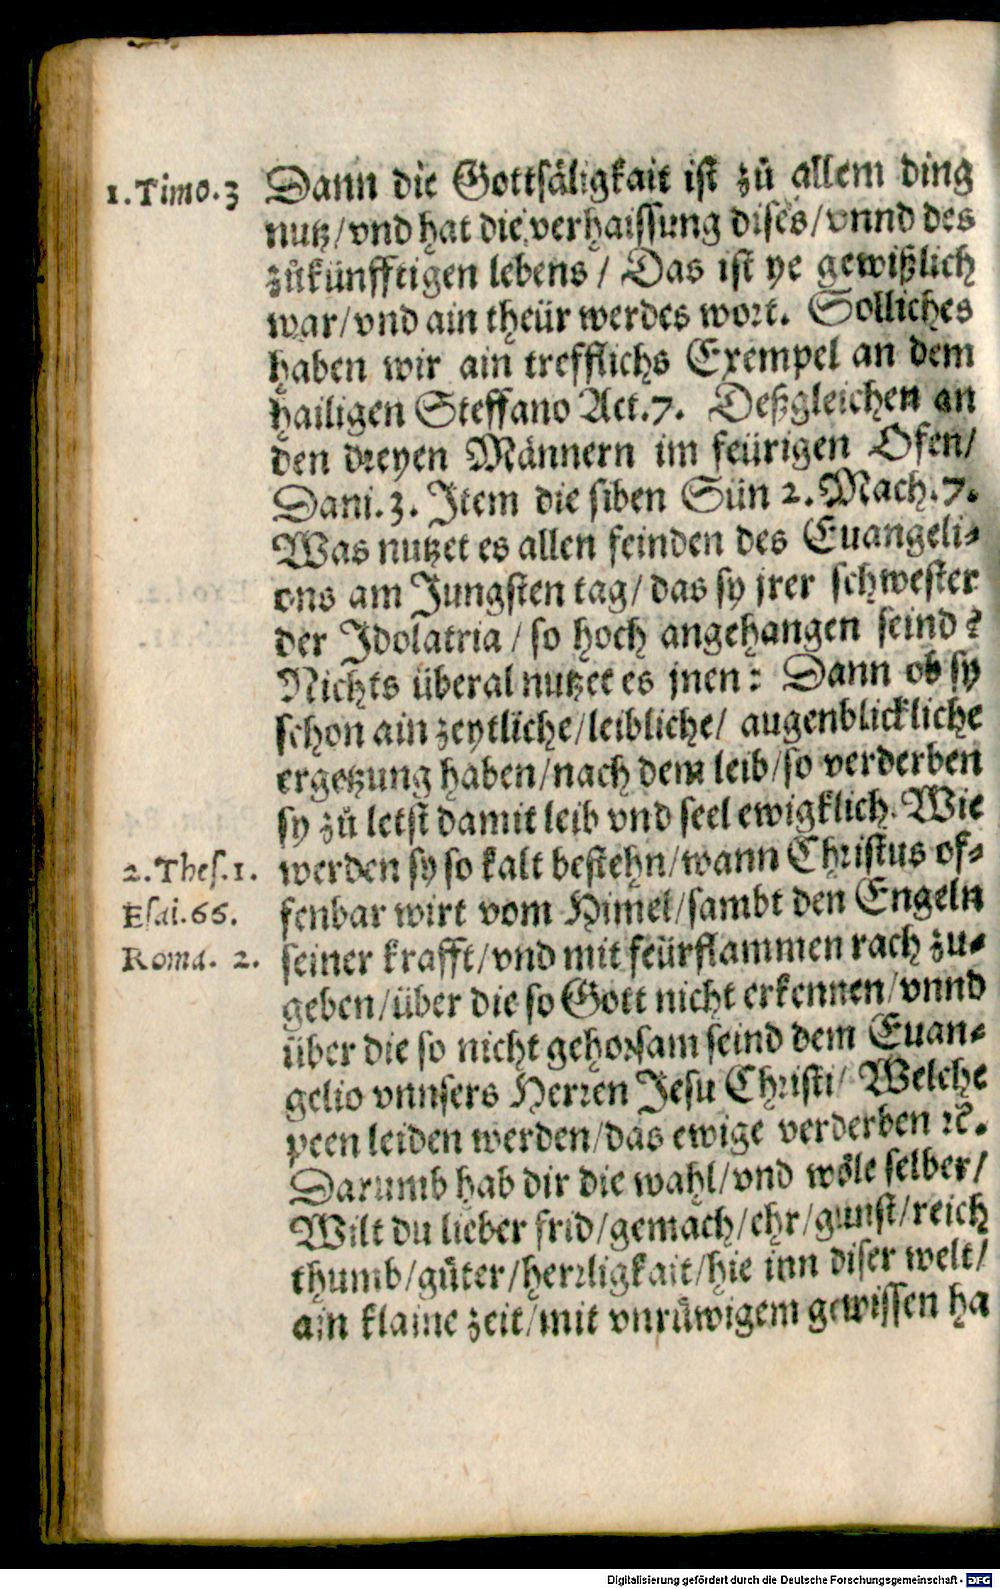 1. Timo. 3
Dann die Gottsäligkait ist zů allem ding
nutz/vnd hat die verhaissung dises/vnnd des
zůkünfftigen lebens/ Das ist ye gewißlich
war/vnd ain theür werdes wort. Solliches
haben wir ain trefflichs Exempel an dem
hailigen Steffano Act. 7. Deßgleichen an
den dreyen Männern im feürigen Ofen/
Dani. 3. Item die siben Sün 2. Mach. 7.
Was nutzet es allen feinden des Euangeli-
ons am Jungsten tag/ das sy jrer schwester
der Idolatria/ so hoch angehangen seind?
Nichts überal nutzet es jnen: Dann ob sy
schon ain zeytliche/leibliche/ augenblickliche
ergetzung haben/nach dem leib/so verderben
sy zů letst damit leib vnd seel ewigklich. Wie
2. Thes. 1.
werden sy so kalt bestehn/wann Christus of-
Esai. 66.
fenbar wirt vom Himel/sambt den Engeln
Roma. 2.
seiner krafft/vnd mit feürflammen rach zu-
geben/über die so Gott nicht erkennen/vnnd
über die so nicht gehorsam seind dem Euan-
gelio vnnsers Herren Jesu Christi/ Welche
peen leiden werden/das ewige verderben ꝛc.
Darumb hab dir die wahl/vnd wöle selber/
Wilt du lieber frid/gemach/ehr/gunst/reich
thumb/güter/herrligkait/hie inn diser welt/
ain klaine zeit/mit vnrüwigem gewissen ha
Digitalisierung gefördert durch die Deutsche Forschungsgemeinschaft - DFG